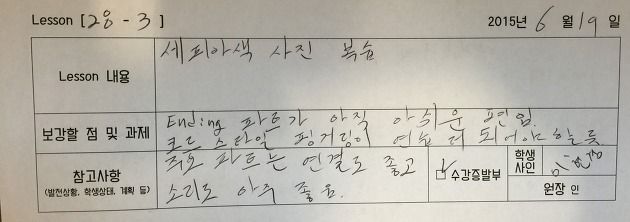 Lesson [28 - 3]
2015년 6월 19일
Lesson 내용
세피아색 사진 복습
보강할 점 및 과제
Ending 파트가 아직 아쉬운 편임.
코드 스타일 핑거링이 연습 더 되어야 할듯.
참고사항
(발전상황, 학생상태, 계획 등)
주요 파트는 연결도 좋고
소리도 아주 좋음.
수강증발부
학생
사인
원장 인